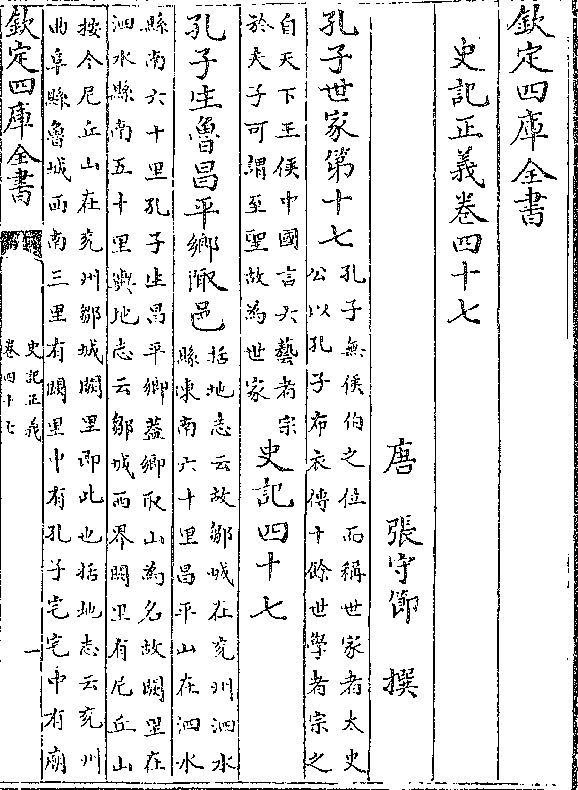 欽定四庫全書
史記正義卷四十七
唐 張守節 撰
孔子世家第十七
孔子無侯伯之位而稱世家者太史
公以孔子布衣傳十餘世學者宗之
自天下王侯中國言六藝者宗
於夫子可謂至聖故為世家
史記四十七
孔子生魯昌平鄉陬邑
括地志云故鄒城在兖州泗水
縣東南六十里昌平山在泗水
縣南六十里孔子生昌平鄉蓋鄉取山為名故闕里在
泗水縣南五十里輿地志云鄒城西界闕里有尼丘山
按今尼丘山在兖州鄒城闕里即此也括地志云兖州
曲阜縣魯城西南三里有闕里中有孔子宅宅中有廟
欽定四庫全書
史記正義
卷四十七
一